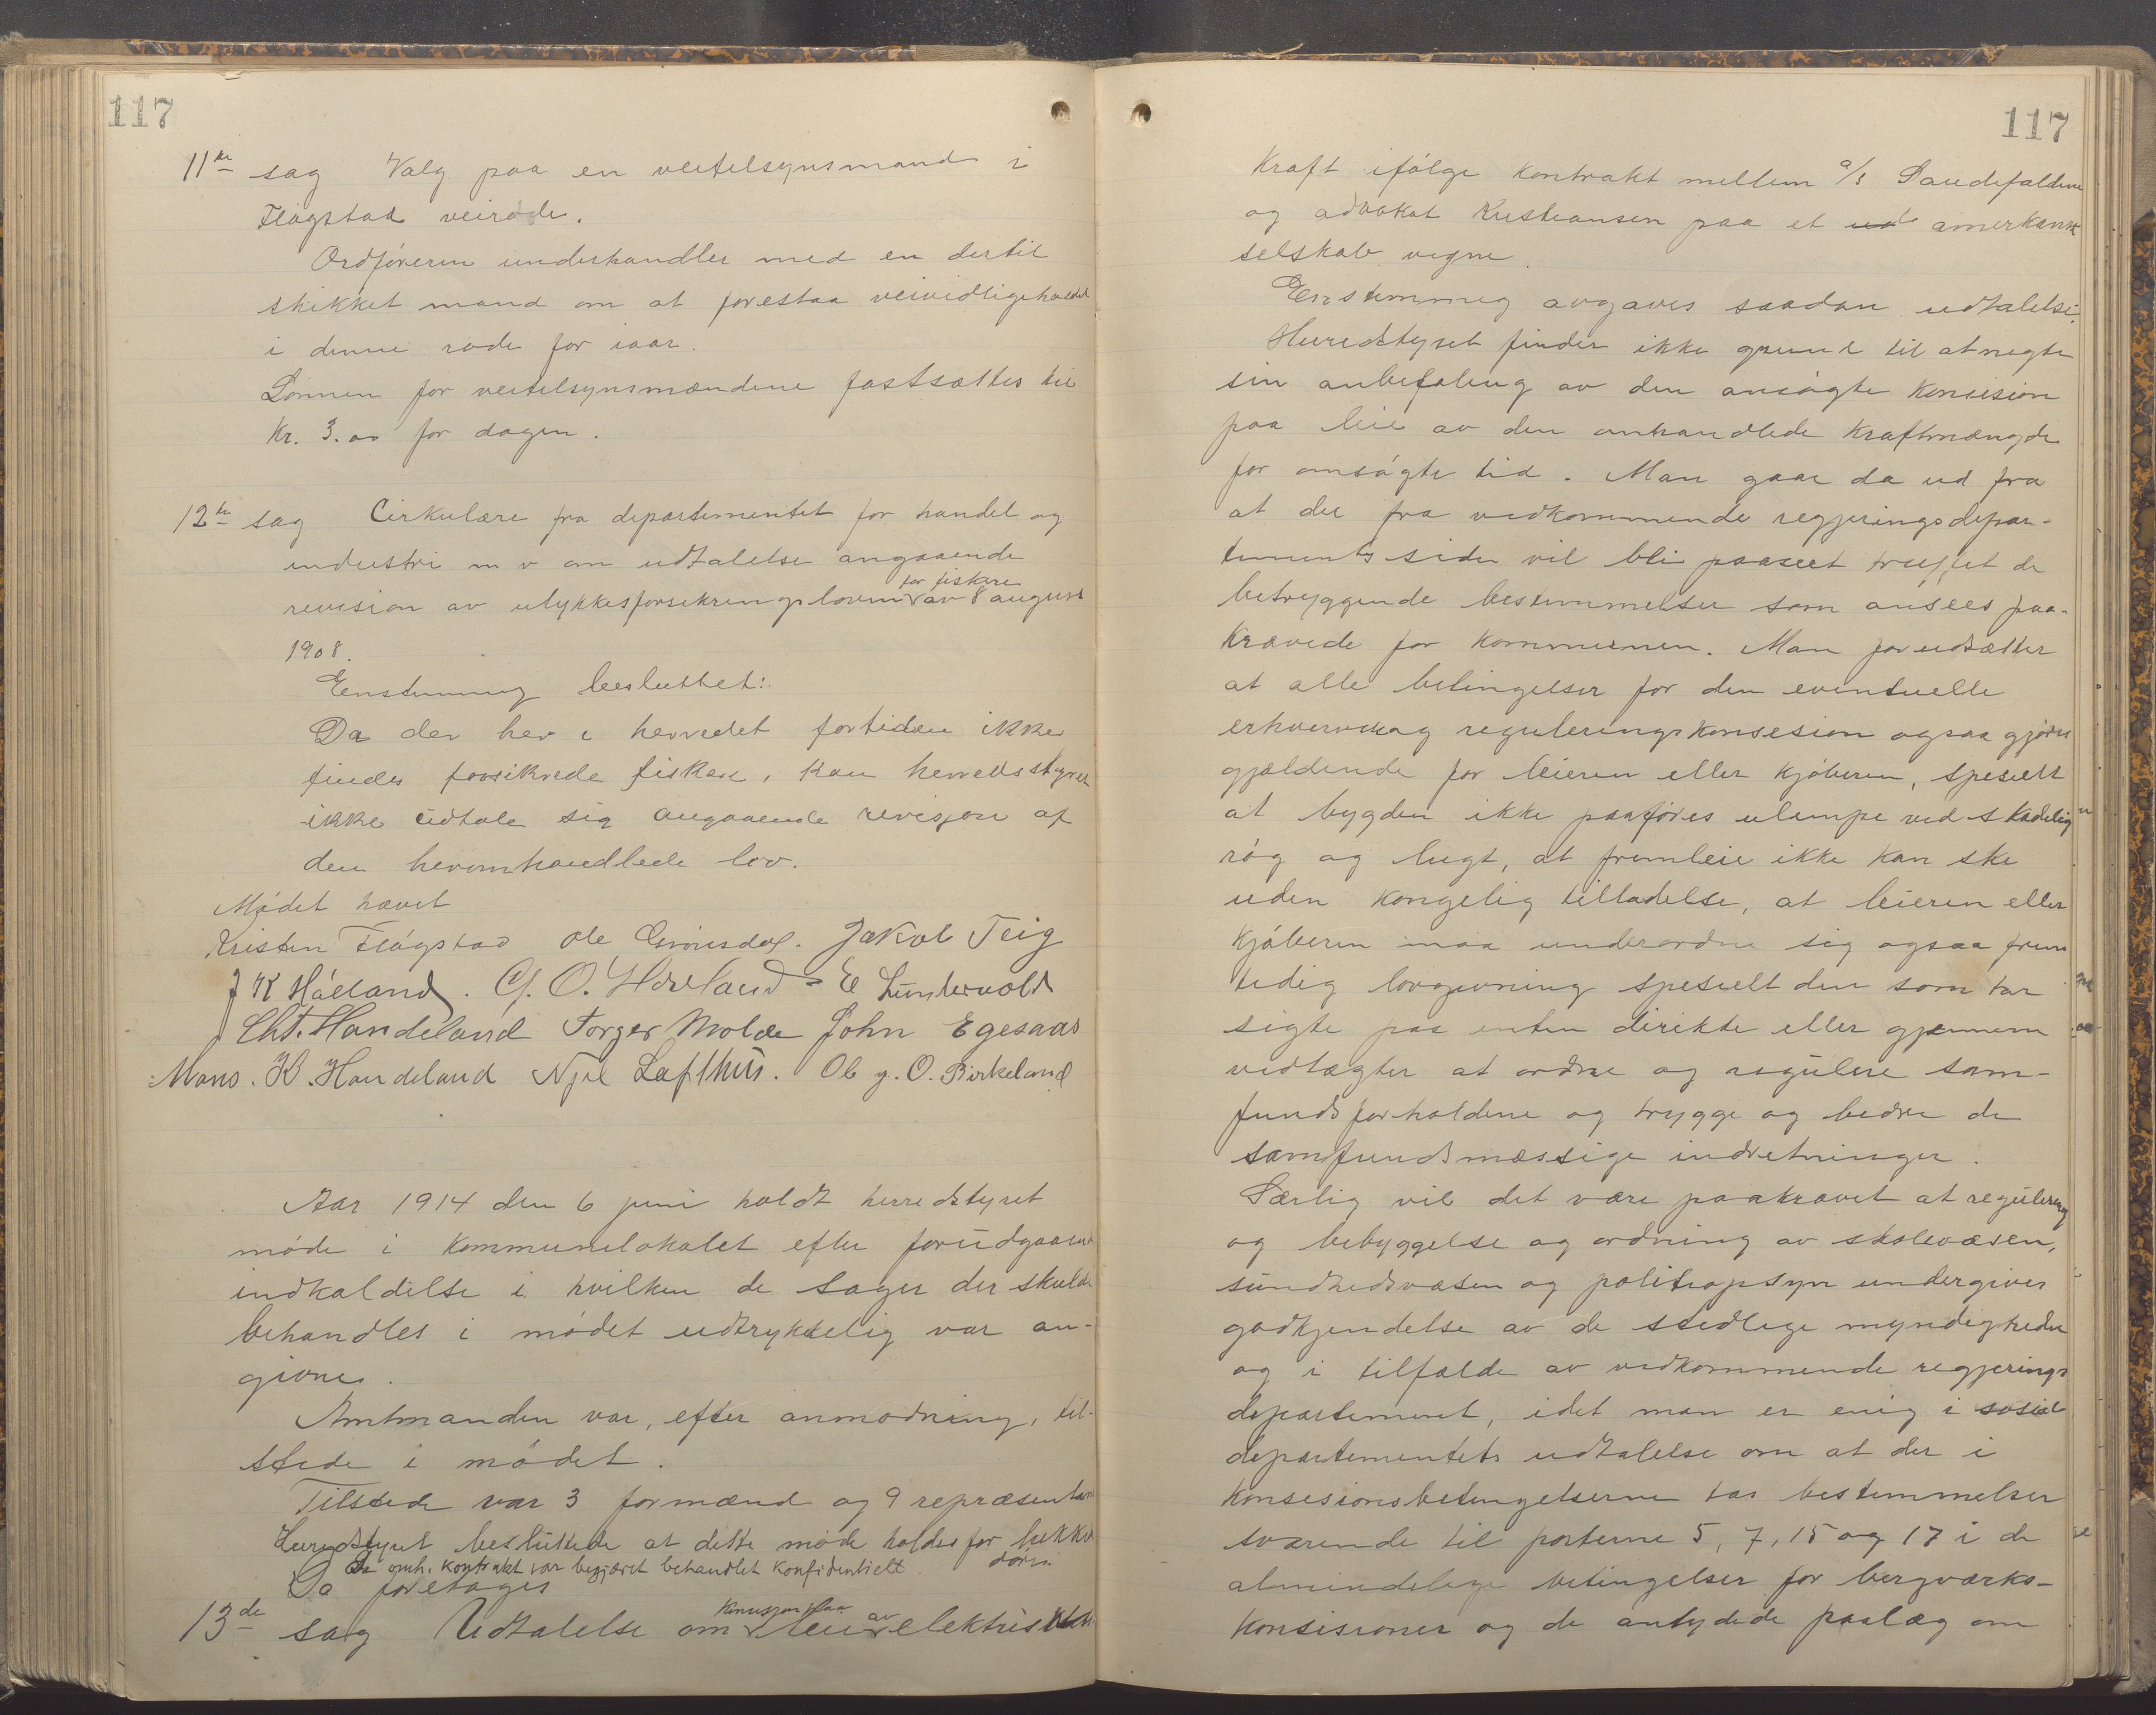 117
11te sag Valg paa en veitelsynsmand i
Fløgstad veirode.
Ordføreren underhandler med en dertil
skikket mand om at forestaa veivedligeholdet
i denne rode for iaar.
Lønnen for veitelsynsmændene fastsættes til
Kr. 3.00 for dagen.
12te sag Cirkulære fra departementet for handel og
industri m v om udtalelse angaaende
for fiskere
revision av ulykkesforsikringsloven av 8 august
1908.
Eenstemmig besluttet:
Da der her i herredet fortiden ikke
findes forsikrede fiskere, kan herredsstyret
ikke udtale sig angaaende revisjon af
den heromhandlede lov.
Mødet hævet
Kristen Fløgstad Ole Grønsdal. Jakob Teig
J K Høiland. G. O. Hovland E Lundevold
Cht. Handeland Torger Molde John Egesaas
Mons. K. Handeland Njel Lofthus. Ole g. O. Birkeland
Aar 1914 den 6 juni holdt herredstyret
møde i kommunelokalet efter forudgaaende
indkaldelse i hvilken de sager der skulde
behandles i mødet udtrykkelig var an-
givne.
Amtmanden var, efter anmodning, til-
stede i mødet.
Tilstede var 3 formænd og 9 repræsentanter
Herredstyret besluttede at dette møde holdes for lukkede
døre
Da omh. kontrakt var begjæret behandlet konfidentielt
Da foretages
konsesjon paa
13de sag Udtalelse om leie av elektrisk
117
Kraft ifølge kontrakt mellem a/s Saudefaldene
og advokat Kristiansen paa et ud amerkansk
selskab vegne.
Eenstemmig avgaves saadan udtalelse:
Herredstyret finder ikke grund til at negte
sin anbefaling av den ansøgte konsesion
paa leie av den omhandlede kraftmængde
for ansøgte tid. Man gaar da ud fra
at der fra vedkommende regjeringsdepar-
tements side vil bli paaseet truffet de
betryggende bestemmelser som ansees paa-
krævede for kommunen. Man forudsætter
at alle betingelser for den eventuelle
erhvervs og reguleringskonsesion ogsaa gjøres
gjældende for leieren eller kjøberen, spesielt
at bygden ikke paaføres ulempe ved skadelig
røg og lugt, at fremleie ikke kan ske
uden kongelig tilladelse, at leieren eller
kjøberen maa underordne sig ogsaa frem
tidig lovgivning spesielt den som tar
sigte paa enten direkte eller gjennem
vedtægter at ordne og regulere sam-
fundsforholdene og trygge og bedre de
samfundsmæssige indretninger.
Særlig vil det være paakrævet at regulering
og bebyggelse og ordning av skolevæsen,
sundhedsvæsen og politiopsyn undergives
godkjendelse av de stedlige myndigheder
og i tilfælde av vedkommende regjerings
departement, idet man er enig i sosial
departementets udtalelse om at der i
konsesionsbetingelserne tas bestemmelser
svarende til posterne 5, 7, 15 og 17 i de
almindelige betingelser for bergværks-
konsisioner og de antydede paalæg om